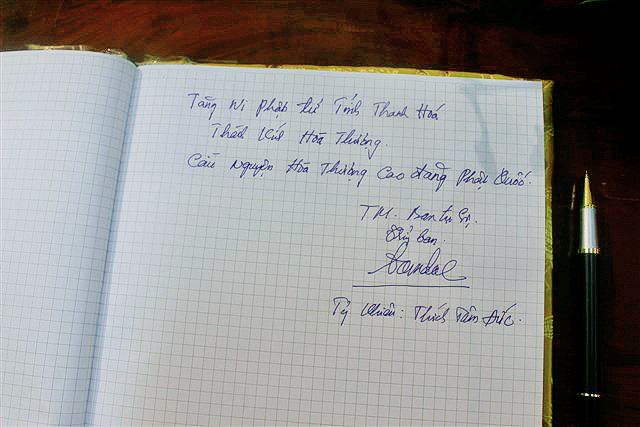 Tăng Ni phật tử Tỉnh Thanh Hoá
Thành Kính Hoà Thượng.
Cầu nguyện Hoà Thượng Cao đăng Phật Quốc.
TM. Ban trị sự.
Ban.
Tỷ Khiêu: Thích Tâm Đức.